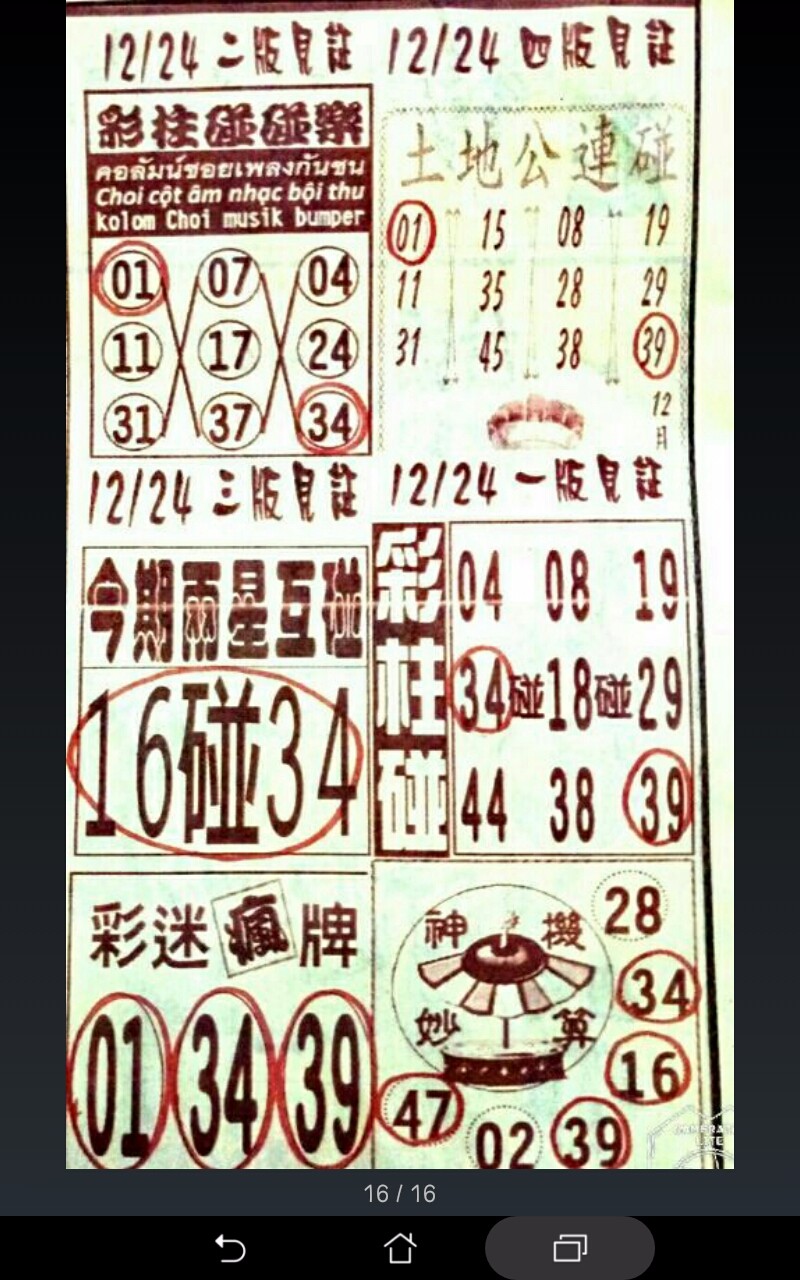 12/24 二版見註
彩柱碰碰樂
คอลัมน์ชอยเพลงกันชน
Choi cột âm nhạc bội thu
kolom Choi musik bumper
01 07 04
11 17 24
31 37 34
12/24 四版見註
土地公連碰
01 15 08 19
11 35 28 29
31 45 38 39
12
月
12/24 三版見註
今期兩星互碰
16碰34
12/24 一版見註
彩柱碰
04 08 19
34碰18碰29
44 38 39
彩迷瘋牌
01 34 39
神機
妙算
28
34
16
47
02
39
CAMERA
LITE
16 / 16